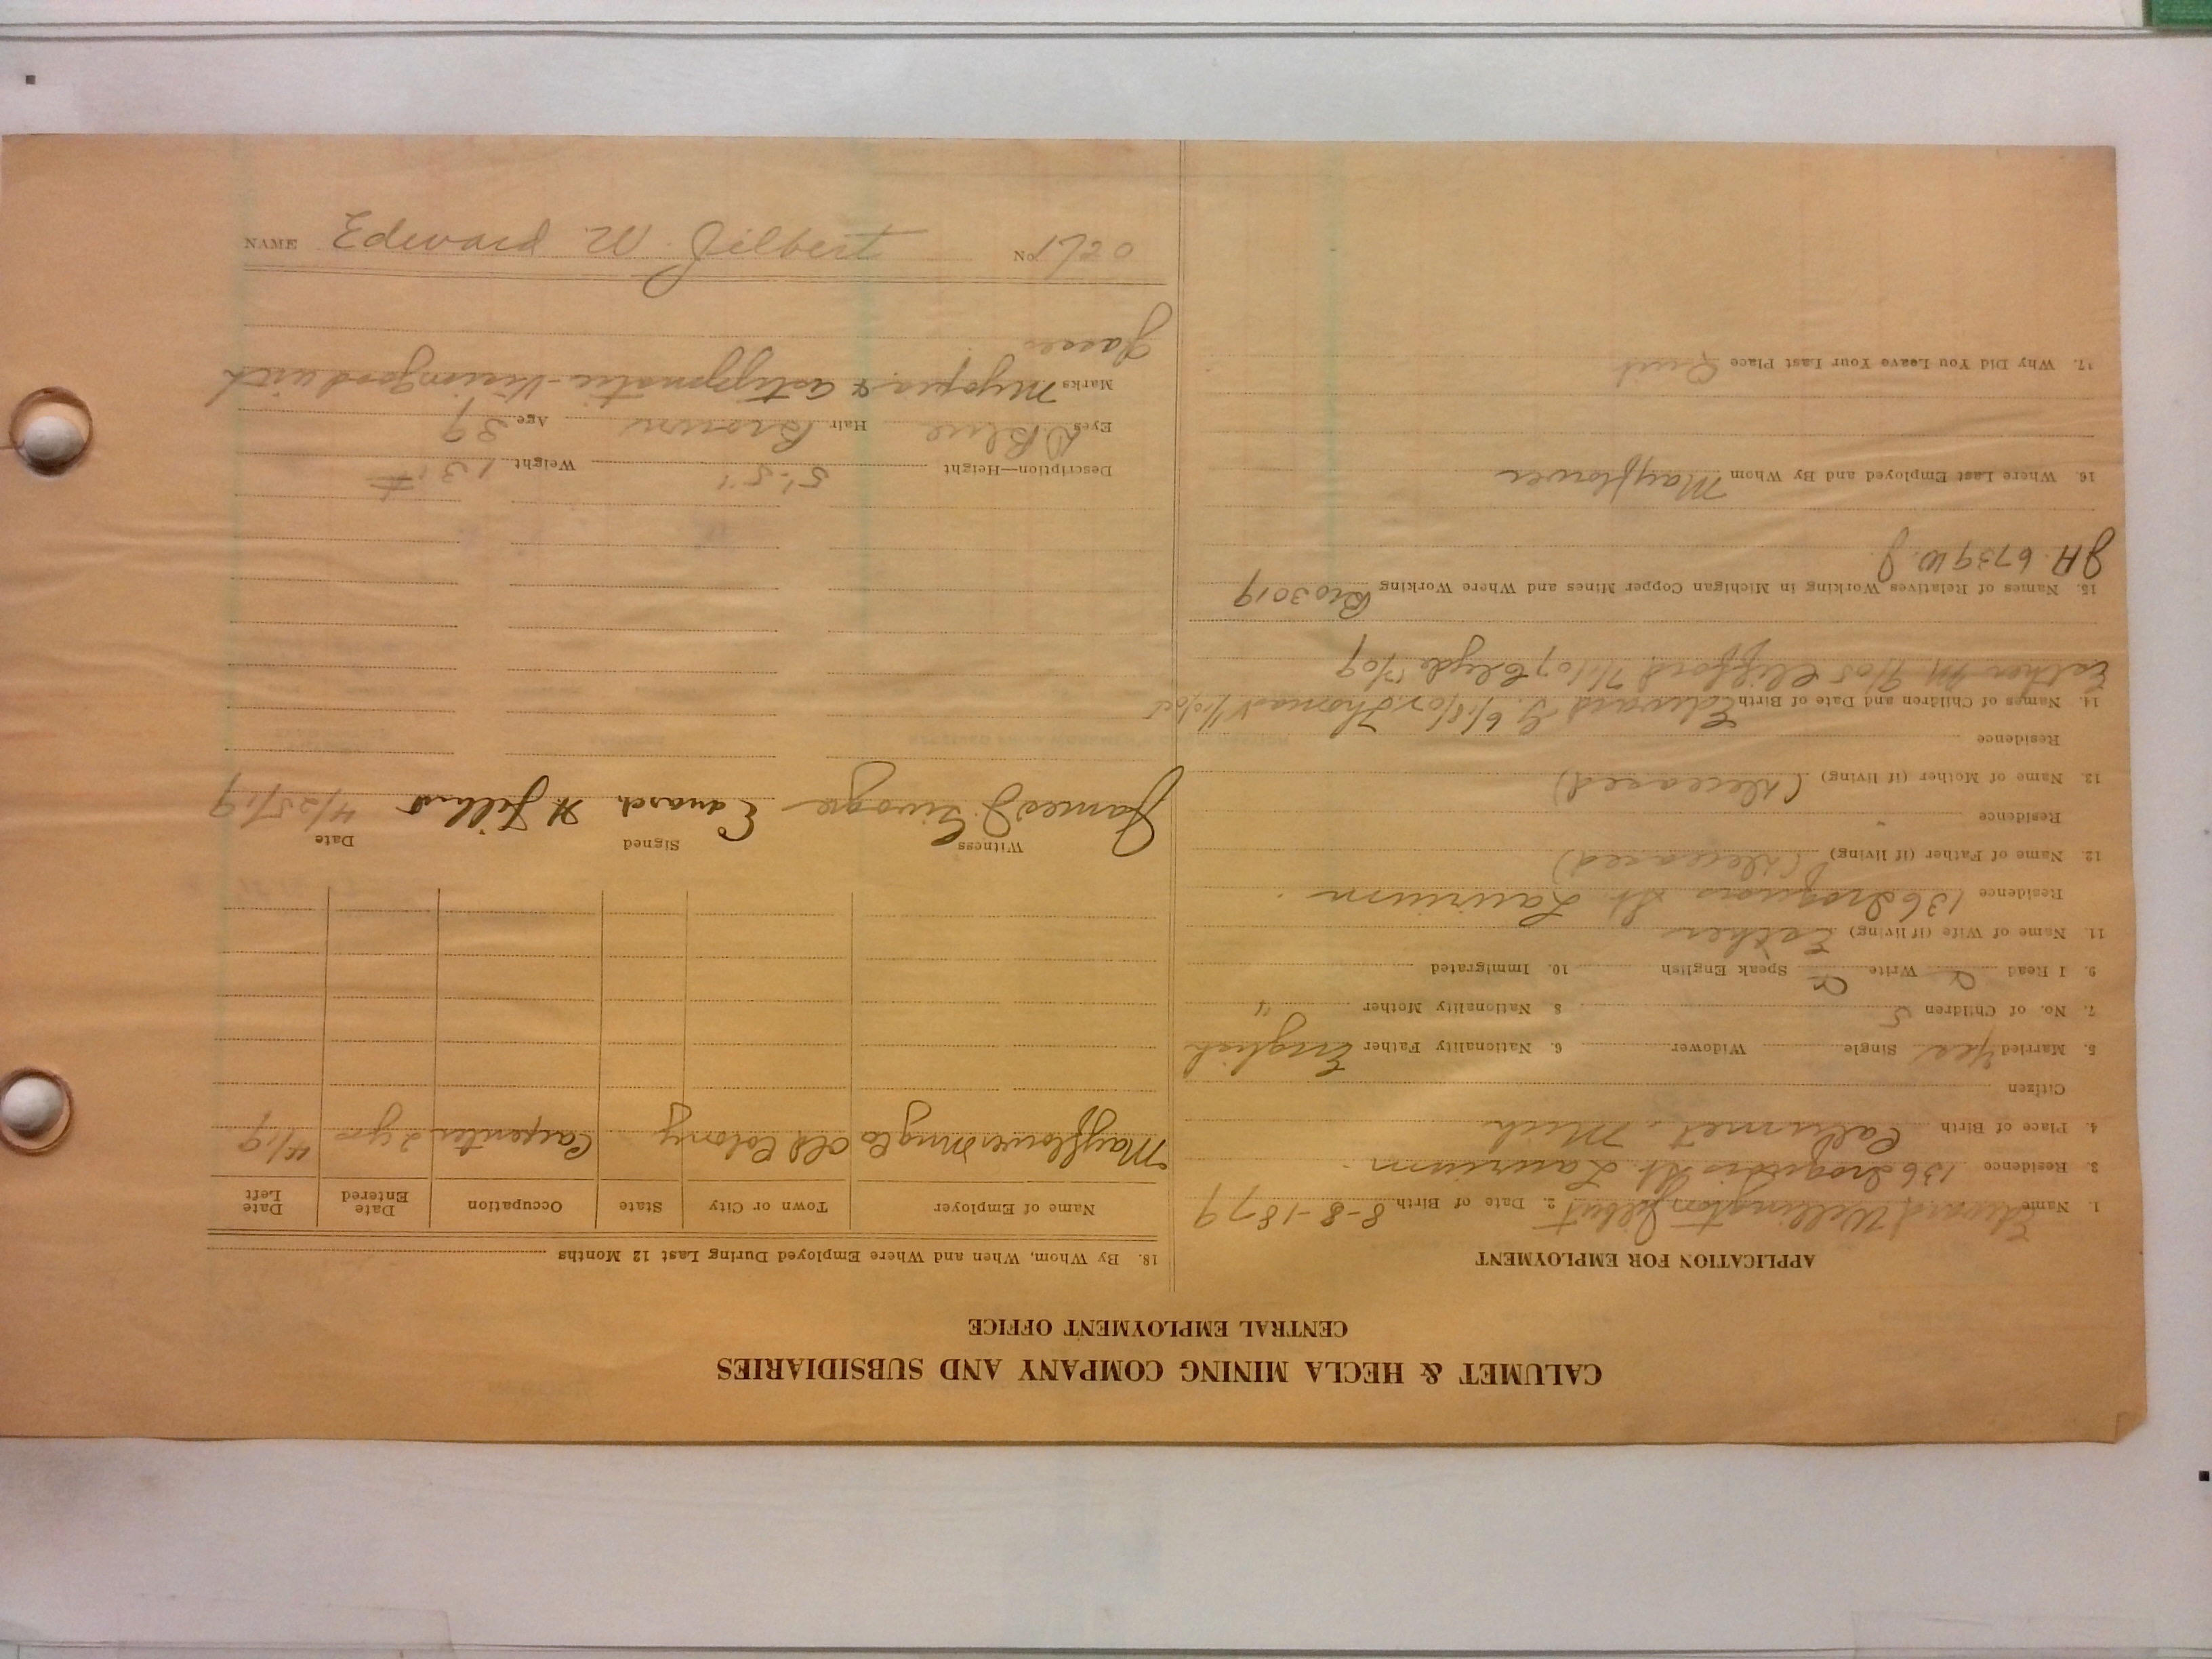 CALUMET & HECLA MINING COMPANY AND SUBSIDIARIES
CENTRAL EMPLOYMENT OFFICE
APPLICATION FOR EMPLOYMENT
1. Name Edward Wellington Jilbert 2. Date of Birth 8-8-1879
3. Residence 136 Iroquois St. Laurium
4. Place of Birth Calumet. Mich
Citizen
5. Married Yes Single Widower 6. Nationality Father English
7. No. of Children 5 8 Nationality Mother "
9. I Read Write Speak English 10. Immigrated
11. Name of Wife (if living) Esther
Residence 136 Iroquois St. Laurium
12. Name of Father (if living) (Deceased)
Residence
13. Name of Mother (if living) (Deceased)
Residence
14. Names of Children and Date of Birth Edward G. Thomas
Esther M Clifford Clyde
15. Names of Relatives Working in Michigan Copper Mines and Where Working Bro 3019
J H. 6739 W. J.
16. Where Last Employed and By Whom Mayflower
17. Why Did You Leave Your Last Place Quit
18. By Whom, When and Where Employed During Last 12 Months
Name of Employer Town or City State Occupation Date Entered Date Left
Mayflower Mng Co Old Colony Carpenter 2 yrs 4/19
Witness Signed Date
James J. Edward 4/25/19
Description—Height 5'.5" Weight
Eyes Blue Hair Brown Age 39
Marks Myopia & astigmatic - Vision good with
glasses
NAME Edward W. Jilbert No. 1720